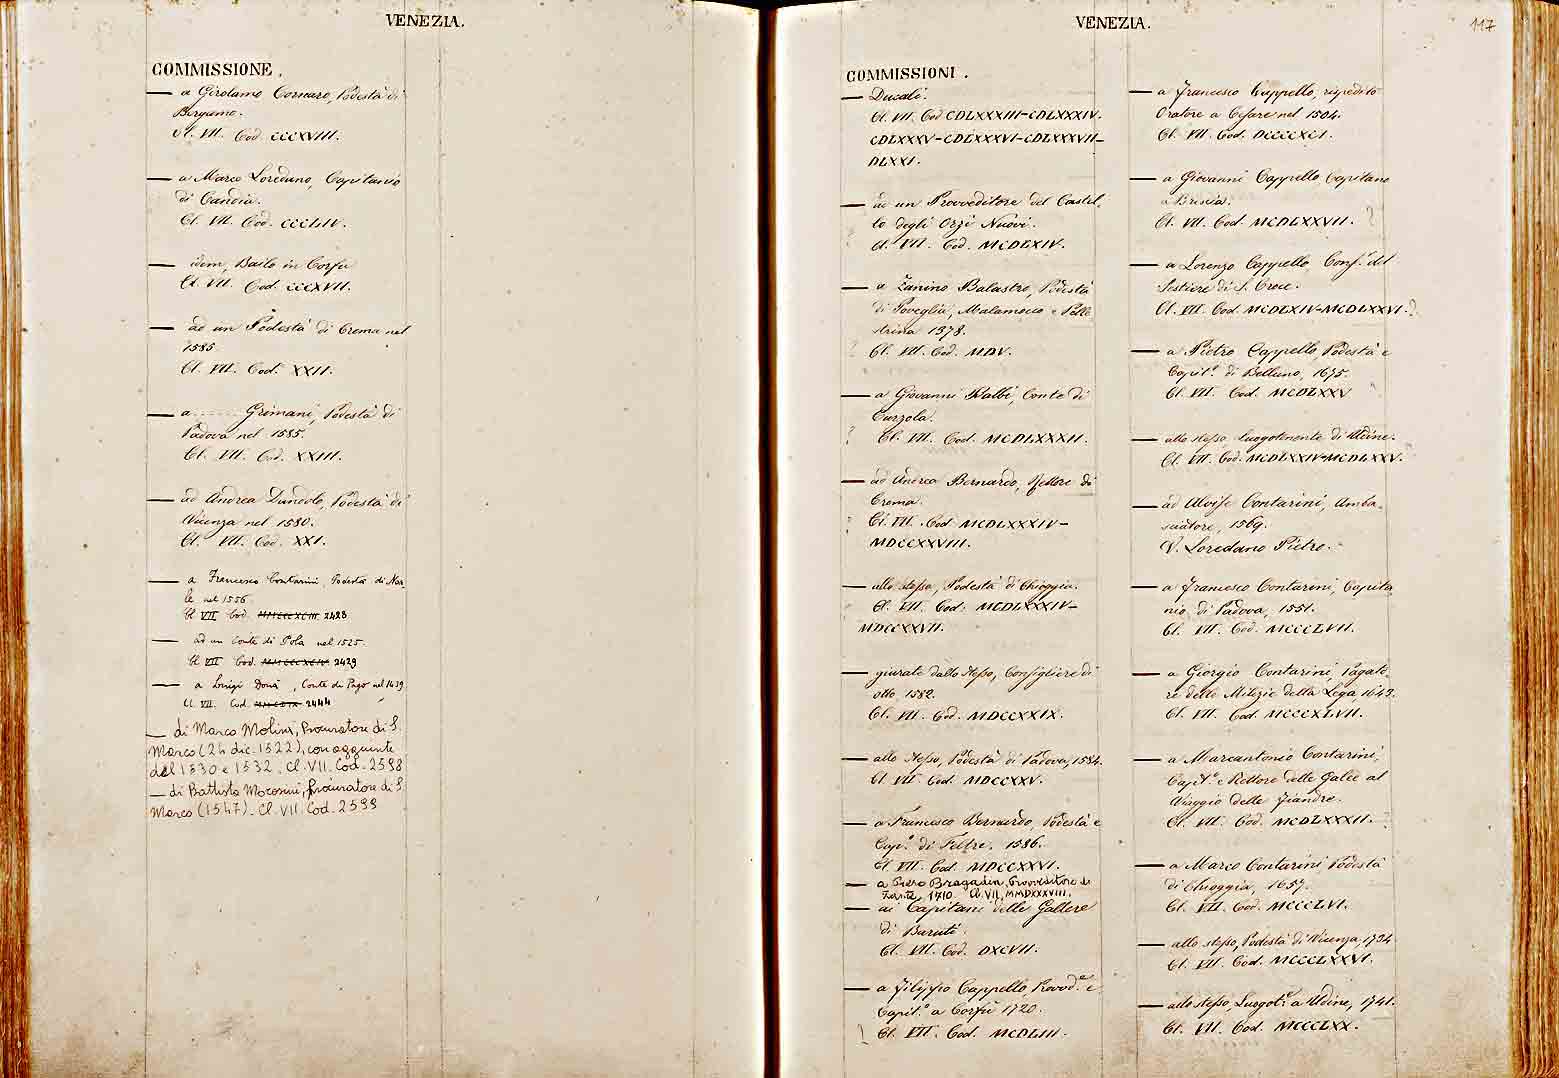 VENEZIA.
COMMISSIONE.
— a Girolamo Cornaro, Podestà di
Bergamo.
Cl. VII. Cod. CCCXVIII.
— a Marco Loredano, Capitanio
di Candia.
Cl. VII. Cod. CCCLIV.
— idem, Bailo in Corfù
Cl. VII. Cod. CCCXVII.
— ad un Podestà di Crema nel
1585.
Cl. VII. Cod. XXII.
— a ....... Grimani, Podestà di
Padova nel 1585.
Cl. VII. Cod. XXIII.
— ad Andrea Dandolo, Podestà di
Vicenza nel 1580.
Cl. VII. Cod. XXI.
— a Francesco Contarini, Podestà di Noa
le nel 1556.
Cl VII Cod. 2428
— ad un Conte di Pola nel 1525.
Cl VII Cod. 2429
— a Luigi Donà, Conte di Pago nel 1439
Cl. VII. Cod. 2444
— di Marco Molini, Procuratore di S.
Marco (24 dic. 1522), con aggiunte
del 1530 e 1532. Cl. VII. Cod. 2598
— di Battista Morosini, Procuratore di S.
Marco (1547). Cl. VII. Cod. 2599
VENEZIA.
117
COMMISSIONI.
— Ducali.
Cl. VII. Cod CDLXXXIII-CDLXXXIV.
CDLXXXV-CDLXXXVI-CDLXXXVII-
DLXXI.
— ad un Provveditore del Castel,
lo degli Orzi Nuovi.
Cl. VII. Cod. MCDLXIV.
— a Zanino Balastro, Podestà
di Poveglia, Malamocco e Pale
strina 1378.
Cl. VII. Cod. MDV.
— a Giovanni Balbi, Conte di
Curzola.
Cl. VII. Cod. MCDLXXXII.
— ad Andrea Bernardo, Rettore di
Crema.
Cl. VII. Cod. MCDLXXXIV-
MDCCXXVIII.
— allo stesso, Podestà di Chioggia.
Cl. VII. Cod. MCDLXXXIV-
MDCCXXVII.
— giurate dallo stesso, Consigliere di
otto, 1582.
Cl. VII. Cod. MDCCXXIX.
— allo stesso, Podestà di Padova, 1584.
Cl. VII. Cod. MDCCXXV.
— a Francesco Bernardo, Podestà e
Cap.º di Feltre, 1586.
Cl. VII. Cod. MDCCXXVI.
— a Piero Bragadin, Provveditore di
Zante, 1710. Cl. VII, MMDXXXVIII.
— ai Capitani delle Gallere
di Baruti.
Cl. VII. Cod. DXCVII.
— a Filippo Cappello, Provv.e e
Capit.º a Corfù 1720.
Cl. VII. Cod. MCDLIII.
— a Francesco Cappello, rispedito
Oratore a Cesare nel 1504.
Cl. VII. Cod. DCCCCXCI.
— a Giovanni Cappello Capitano
a Brescia.
Cl. VII. Cod. MCDLXXVII.
— a Lorenzo Cappello Cons.r del
Sestiere di S. Croce.
Cl. VII. Cod. MCDLXIV-MCDLXXVI.
— a Pietro Cappello, Podestà e
Capit.º di Belluno, 1675.
Cl. VII. Cod. MCDLXXV
— allo stesso, Luogotenente di Udine.
Cl. VII. Cod. MCDLXXIV-MCDLXXV.
— ad Alvise Contarini, Amba-
sciatore, 1569.
V. Loredano Pietro.
— a Francesco Contarini, Capita
nio di Padova, 1551.
Cl. VII. Cod. MCCCLVII.
— a Giorgio Contarini, Pagato-
re delle Milizie della Lega 1643.
Cl. VII. Cod. MCCCXLVII.
— a Marcantonio Contarini,
Capit.º e Rettore delle Galee al
Viaggio delle Fiandre.
Cl. VII. Cod. MCDLXXXII.
— a Marco Contarini Podestà
di Chioggia, 1657.
Cl. VII. Cod. MCCCLVI.
— allo stesso, Podestà di Vicenza, 1734.
Cl. VII. Cod. MCCCLXXVI.
— allo stesso, Luogot.e a Udine, 1741.
Cl. VII. Cod. MCCCLXX.